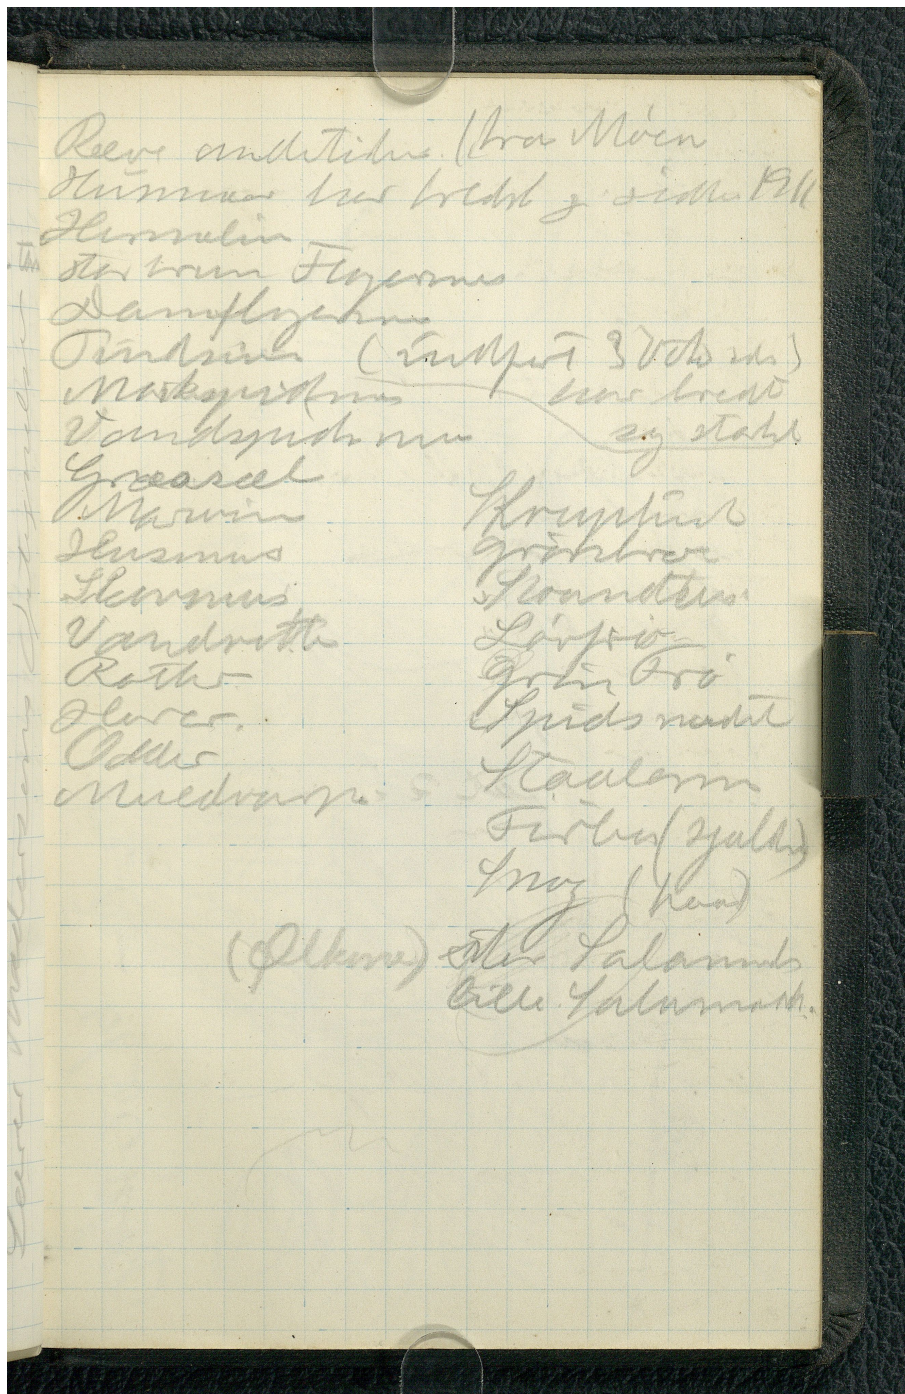 Ræve andetides (fra Möen
Husmaar har bredt sig siden 1911
Hermelin
stor brun Flagermus
Damflagermus
Pindsvin (indført 3 Voksne)
Markspidsmus har bredt
Vandspidsmus sig stærkt
Graasæl
Marsvin
Husmus
Skovmus
Vandrotte
Rotter
Harer.
Odder
Muldvarp.
Skruptuds
grönbroget
Strandtuds
Lövfrö
Grön Frö
Spidssnudet
Staalorm
Fiirben (sjælden)
Snog
(Ølkerne) stor Salamander
Lille Salamander.